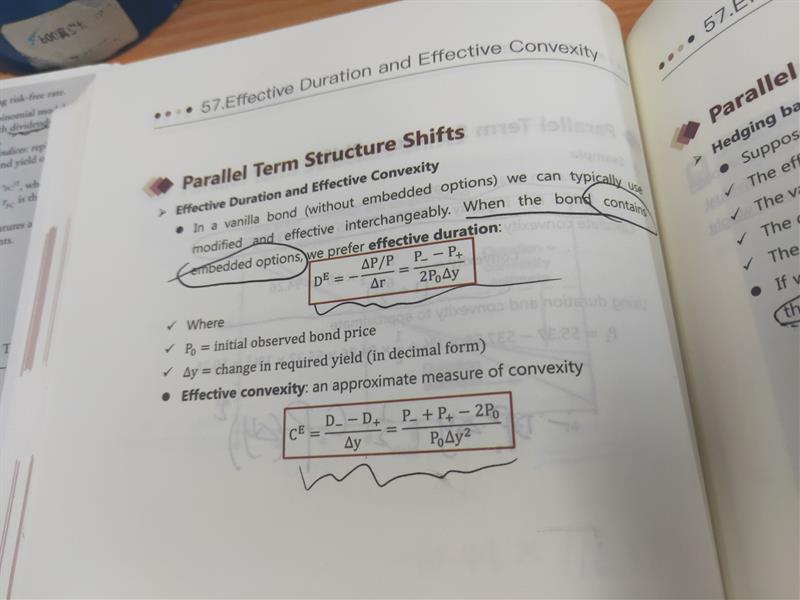 57.Effective Duration and Effective Convexity
Parallel Term Structure Shifts
➢ Effective Duration and Effective Convexity
● In a vanilla bond (without embedded options) we can typically use
modified and effective interchangeably. When the bond contains
embedded options, we prefer effective duration:
D^E = −(ΔP/P)/Δr = (P₋ − P₊)/(2P₀Δy)
✓ Where
✓ P₀ = initial observed bond price
✓ Δy = change in required yield (in decimal form)
● Effective convexity: an approximate measure of convexity
C^E = (D₋ − D₊)/Δy = (P₋ + P₊ − 2P₀)/(P₀Δy²)
ng risk-free rate.
th dividend
57.
Parallel
➢ Hedging ba
● Suppos
✓ The eff
✓ The va
✓ The
✓ The
● If